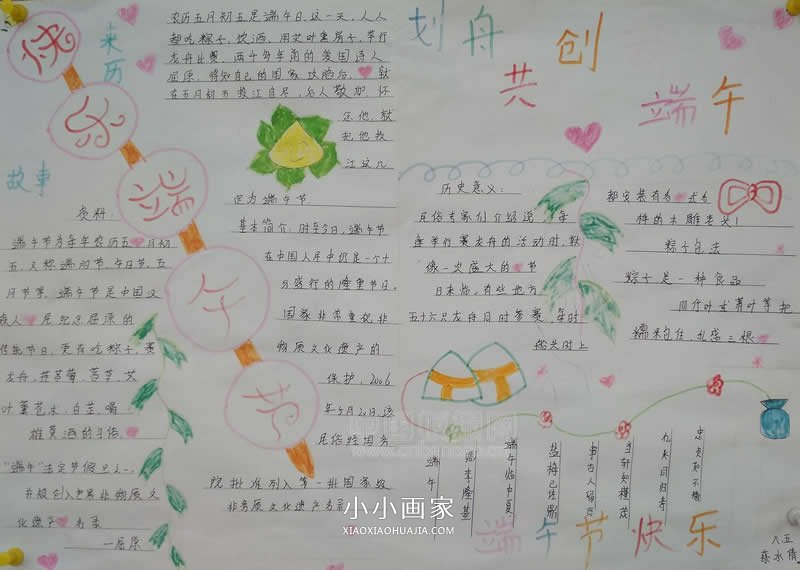 快乐端午节
来历
农历五月初五是端午日,这一天,人人
都吃粽子,饮酒,用艾叶熏房子,举行
龙舟比赛,两千多年前的爱国诗人
屈原,得知自己的国家攻陷后,就
在五月初五投江自尽,后人敬加怀
念他,就
把他投
江这儿
定为端午节
故事
资料:
端午节为每年农历五月初
五,又称端阳节,午日节,五
月节等,端午节是中国汉
族人民纪念屈原的
传统节日,更有吃粽子,赛
龙舟,挂菖蒲,蒿草,艾
叶薰艺术,白芷,喝
雄黄酒的习俗
"端午"法定节假日
并被列入世界非物质文
化遗产名录
—屈原
基本简介:时至今日,端午节
在中国人民中仍是一个十
分盛行的隆重节日,
国家非常重视非
物质文化遗产的
保护,2006
年5月20日,该
民俗经国务
院批准列入第一批国家级
非物质文化遗产名录
划舟共创端午
历史意义:
民俗专家们介绍说,每
逢举行赛龙舟的活动时,就
像一次盛大的节
日来临,有些地方
五十六只龙舟同时参赛,每时
船头时上
都安装有各式各
样的木雕龙头!
粽子包法
粽子是一种食品
用竹叶或苇叶等把
糯米包住,扎成三根
端午
李隆基
端午临中夏
盐梅已佐鼎
事古人留迹
当轩知槿茂
忠贞如不替
端午节快乐
八.五
小小画家
XIAOXIAOHUAJIA.COM